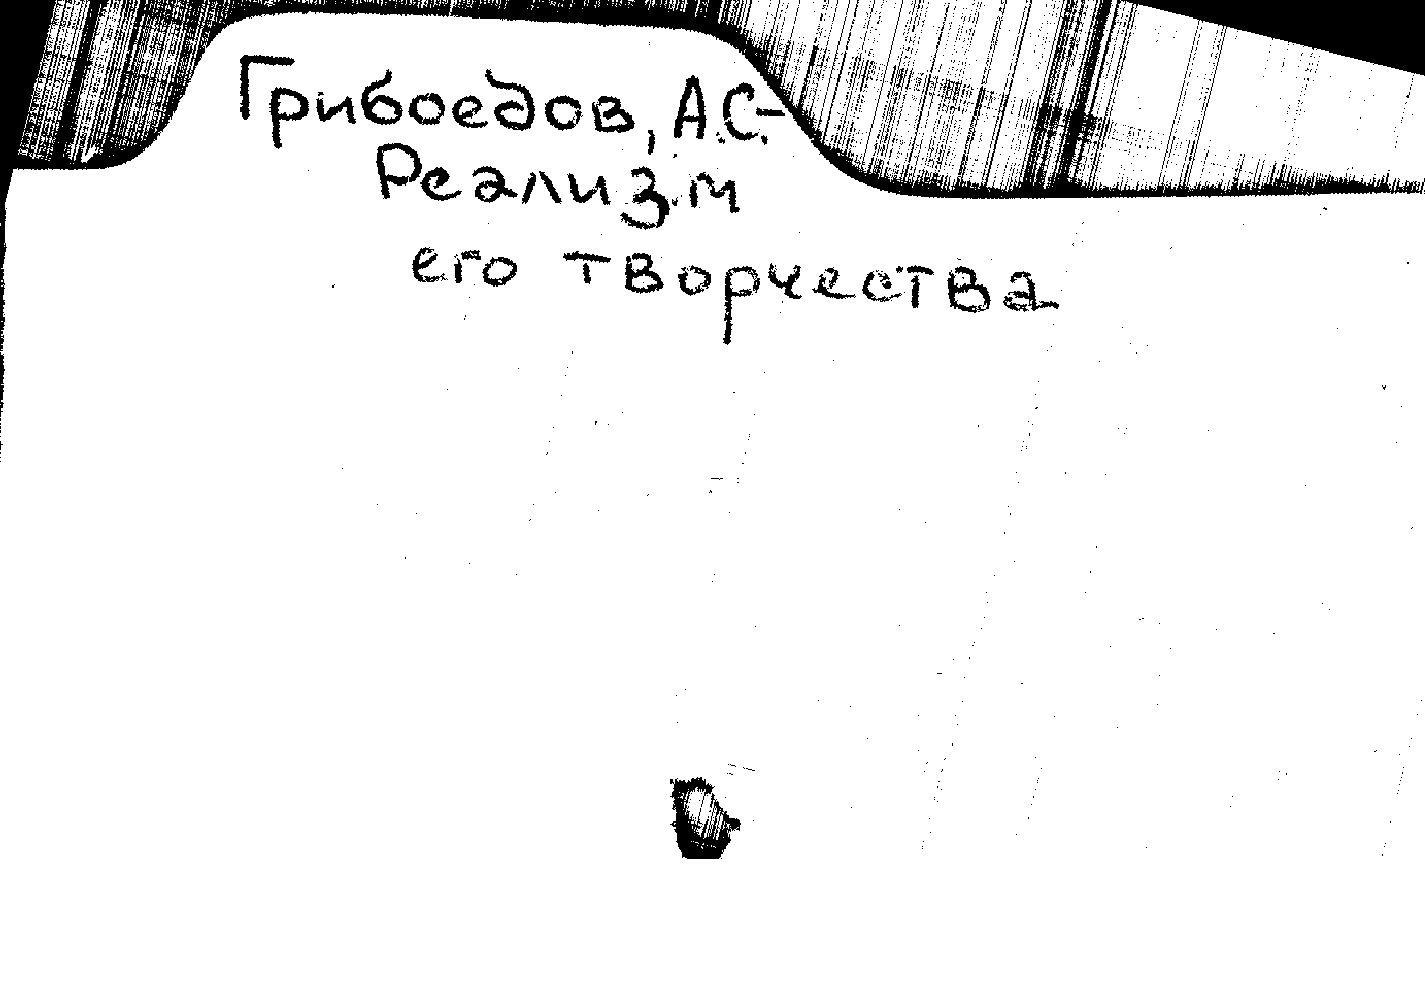 Грибоедов, А.С.-
Реализм
его творчества